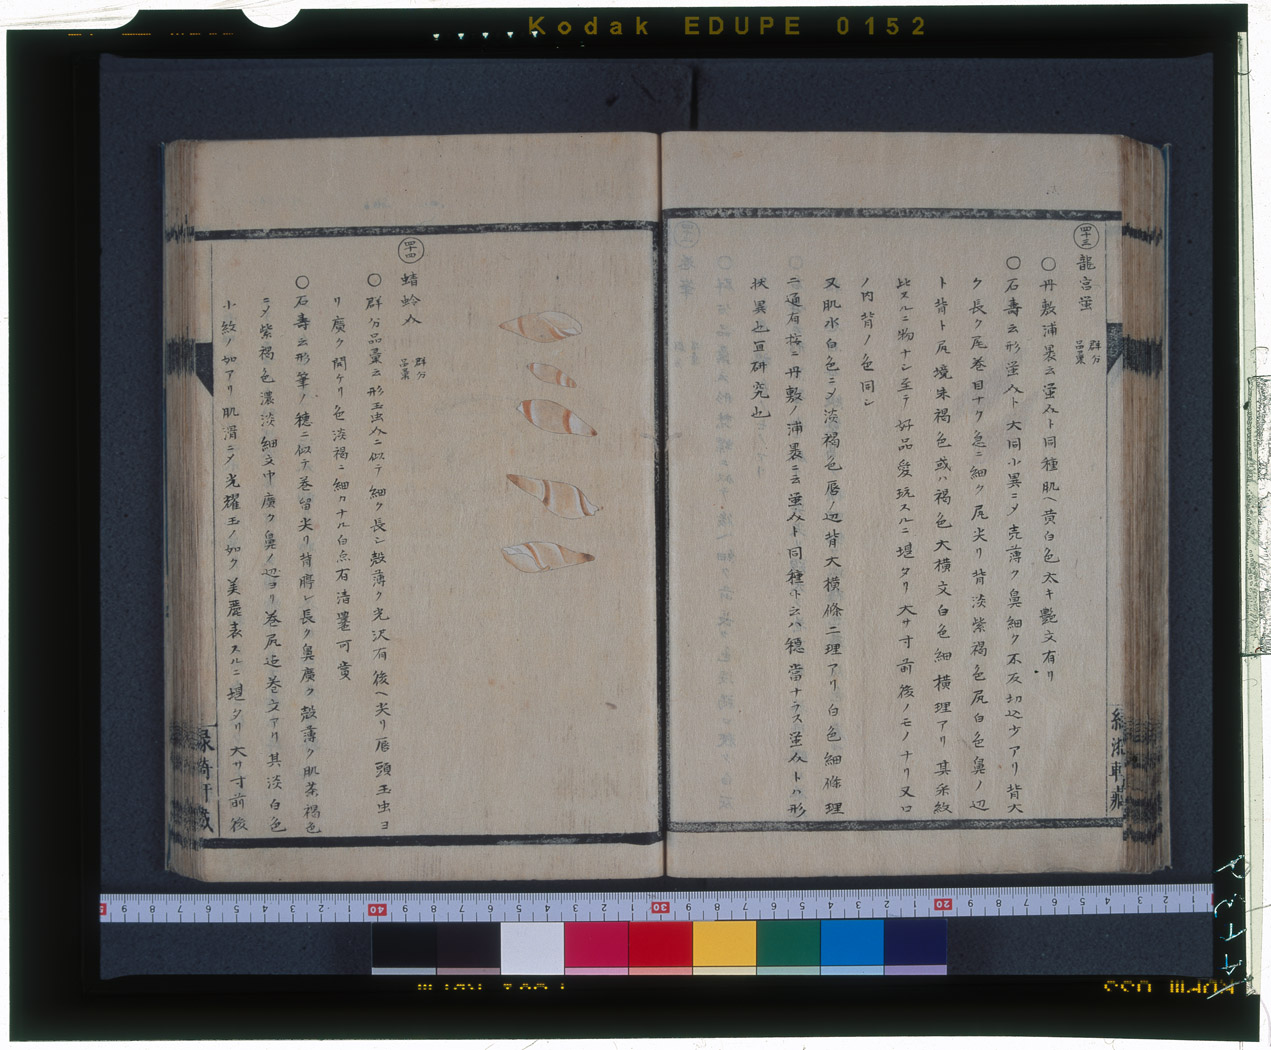 Kodak EDUPE 0152
四十三 龍宮蛍 群分品彙
○丹敷浦裏云蛍介ト同種肌ヘ黄白色太キ艶文有リ
○石壽云形蛍介ト大同小異ニメ売薄ク鼻細ク不反切込少アリ背大
ク長ク尾巻目ナク急ニ細ク尻尖リ背淡紫褐色尻白色鼻ノ辺
ト背ト尻境朱褐色或ハ褐色大横文白色細横理アリ其采紋
比スルニ物ナシ至テ好品愛玩スルニ堪タリ大サ寸前後ノモノナリ又口
ノ内背ノ色同シ
又肌水白色ニメ淡褐色唇ノ辺背大横條二理アリ白色細條理
ニ通有按ニ丹敷ノ浦裏ニ云蛍介ト同種ト云ハ穏當ナラス蛍介トハ形
状異也宜研究也
緑漪軒藏
四十四 蜻蛉介 群分品彙
○群分品彙云形玉虫介ニ似テ細ク長シ殻薄ク光沢有後ヘ尖リ唇頭玉虫ヨ
リ廣ク開ケリ色淡褐ニ細カナル白点有清麗可賞
○石壽云形筆ノ穂ニ似テ巻留尖リ背脖レ長ク鼻廣ク殻薄ク肌茶褐色
ニメ紫褐色濃淡細文巾廣ク鼻ノ辺ヨリ巻尻迄巻文アリ其淡白色
小紋ノ如アリ肌滑ニメ光耀玉ノ如ク美麗表スルニ堪タリ大サ寸前後
緑漪軒藏